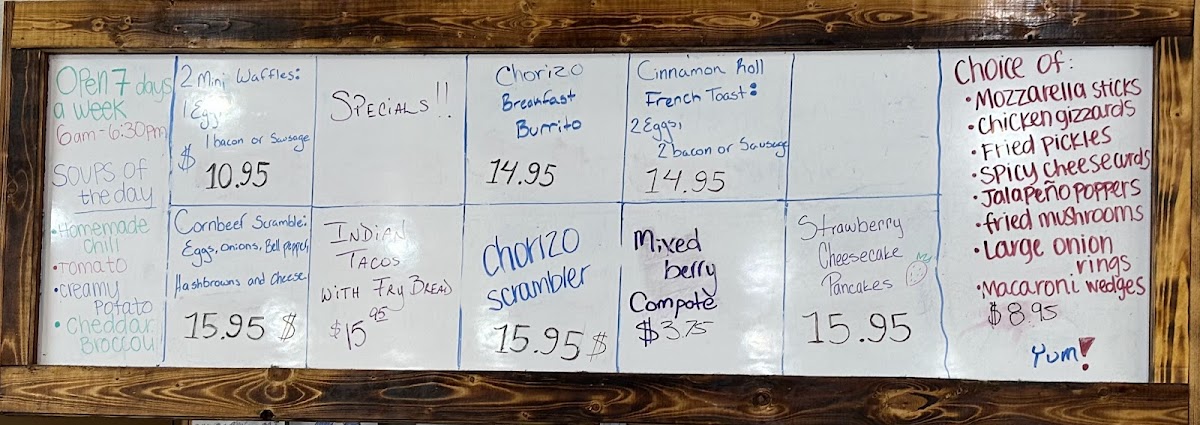 Open 7 days
a week
6am-6:30pm
Soups of
the day
• Homemade
chili
• Tomato
• Creamy
Potato
• Cheddar
Broccoli
2 Mini Waffles:
1 Egg,
1 bacon or Sausage
$ 10.95
Cornbeef Scramble:
Eggs, onions, Bell pepper,
Hashbrowns and Cheese
15.95 $
SPECIALS!!
INDIAN
TACOS
WITH FRY BREAD
$15 95
Chorizo
Breakfast
Burrito
14.95
Chorizo
scrambler
15.95 $
Cinnamon Roll
French Toast:
2 Eggs,
2 bacon or Sausage
14.95
Mixed
berry
Compote
$3.75
Strawberry
Cheesecake
Pancakes
15.95
Choice of:
• Mozzarella sticks
• Chicken gizzards
• Fried pickles
• Spicy cheese curds
• Jalapeño poppers
• fried mushrooms
• Large onion
rings
• Macaroni wedges
$8.95
Yum!